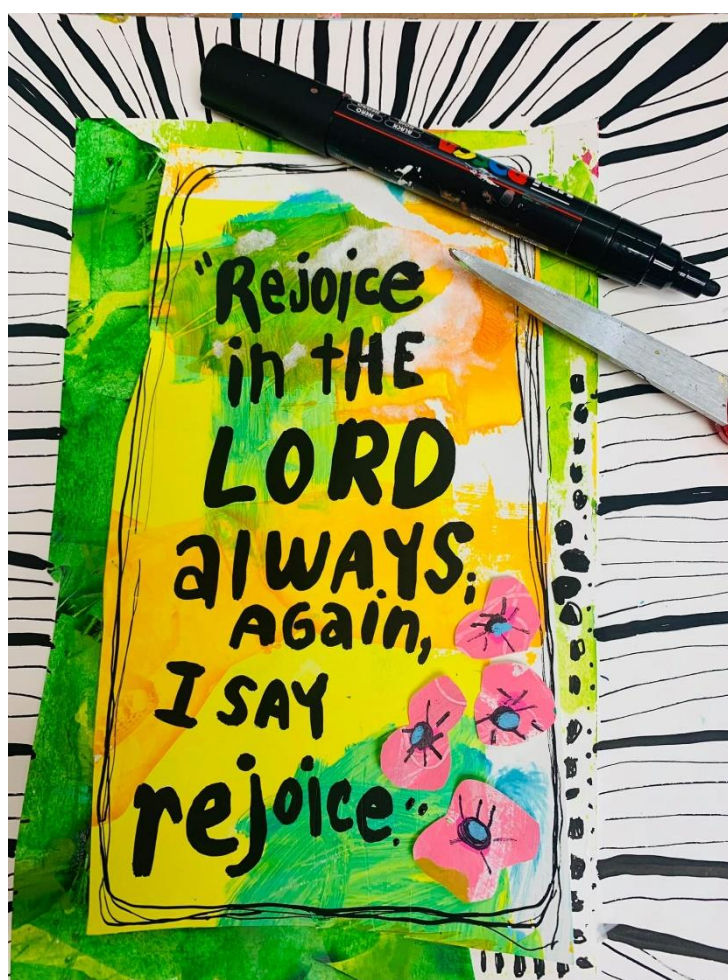 "Rejoice
in tHE
LORD
alWAYS;
AGain,
I SAY
rejoice."